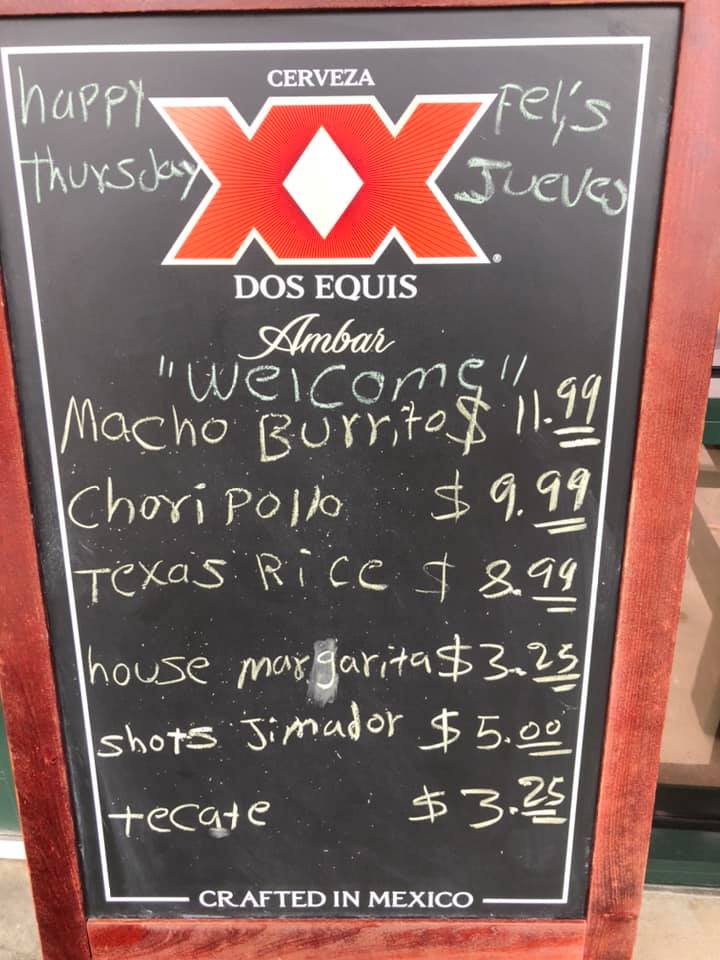 CERVEZA
happy Feli's
thursday Jueves
XX
®
DOS EQUIS
Ambar
"welcome"
Macho Burrito $ 11.99
Choripollo $ 9.99
Texas Rice $ 8.99
house margarita $ 3.25
shots Jimador $ 5.00
tecate $ 3.25
CRAFTED IN MEXICO